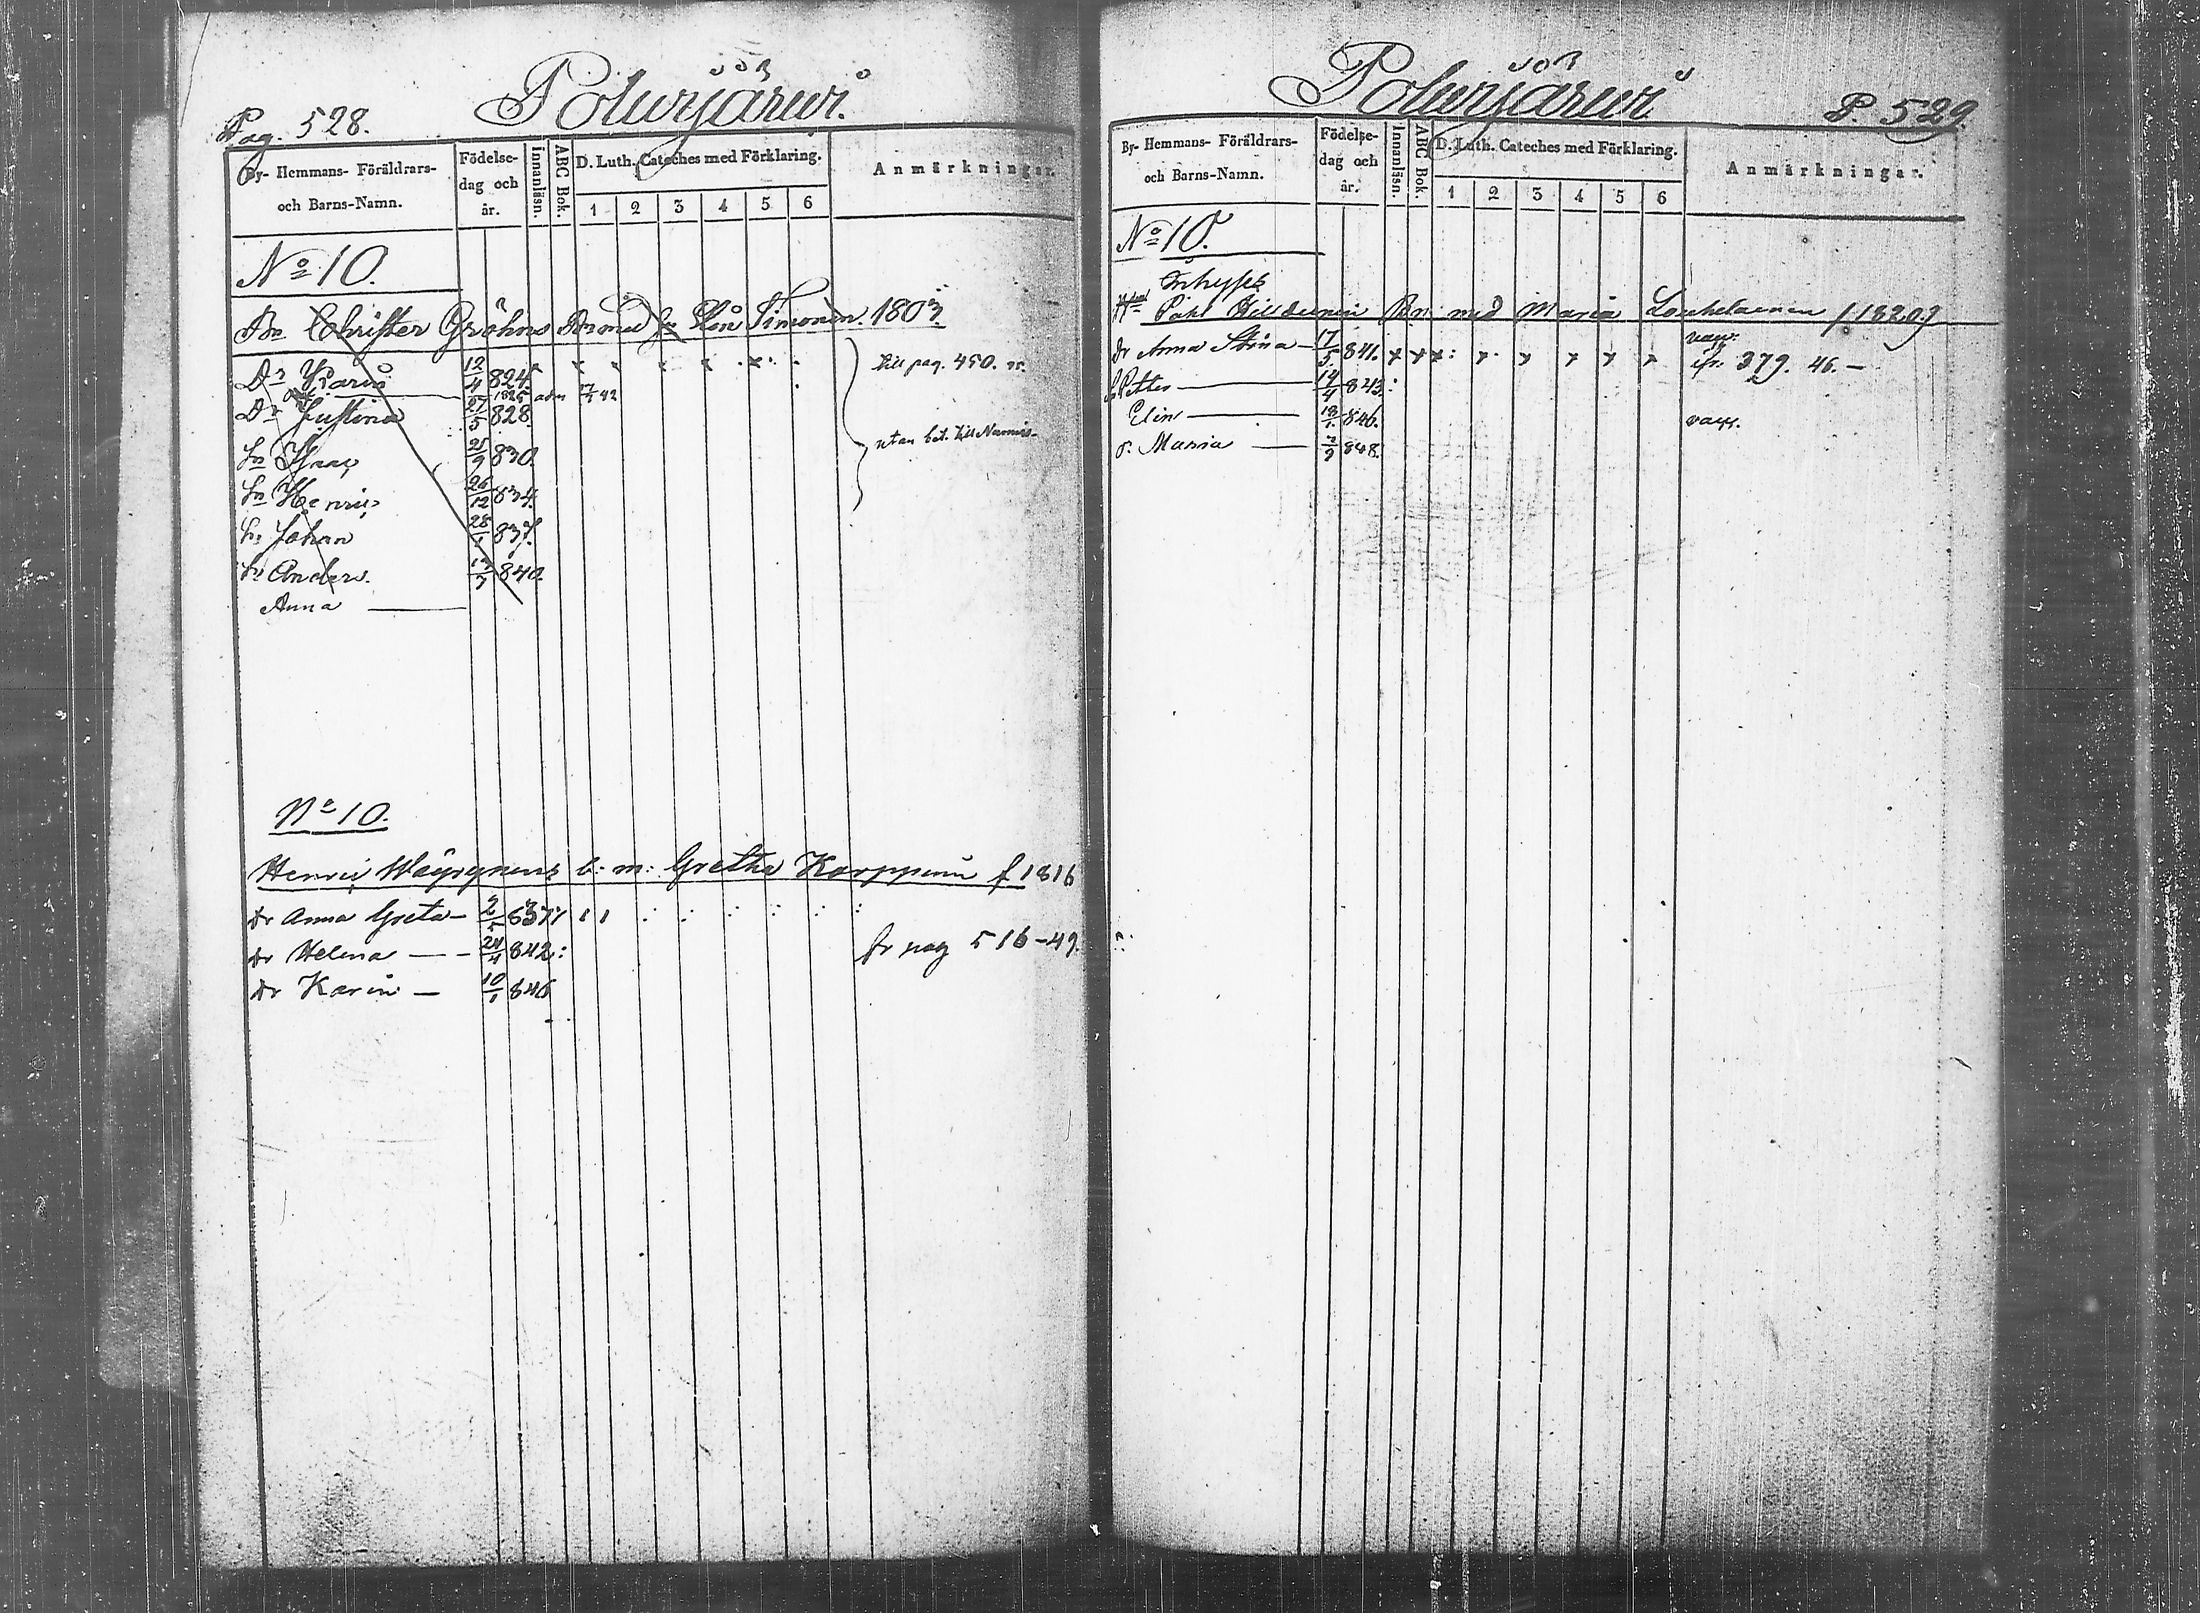 Pag. 528.
Poluxjärwi.
By- Hemmans- Föräldrars- och Barns-Namn.
Födelse- dag och år.
Innanläsn.
ABC Bok.
D. Luth. Cateches med Förklaring.
1 2 3 4 5 6
Anmärkningar.
No 10.
Bn Christer Gröhns Simonen. 1803.
Dr Karin 12/4 824. till pag. 450.
Dr Justina 27/5 828.
Sn Isaac 25/9 830. utan bet. till
Sn Henric 26/12 834.
Sn Johan 28/1 837.
Sn Anders. 840.
Anna
No 10.
Henric Wäyrynens b: m: Gretha Karppinen f 1816
Dr Anna Greta 2/5 837
Dr Helena 24/4 842 fr pag 516-49.
Dr Karin 10/1 846
Poluxjärwi
P. 529.
By- Hemmans- Föräldrars- och Barns-Namn.
Födelse- dag och år.
Innanläsn.
ABC Bok.
D. Luth. Cateches med Förklaring.
1 2 3 4 5 6
Anmärkningar.
No 10.
Inhyses
Påhl Bn med Maria Louhelainen f 1820
Dr Anna Stina 17/5 841. vacc.
fr. 379. 46.
S Petter 14/4 843.
Elin 846. vacc.
Dr Maria 848.